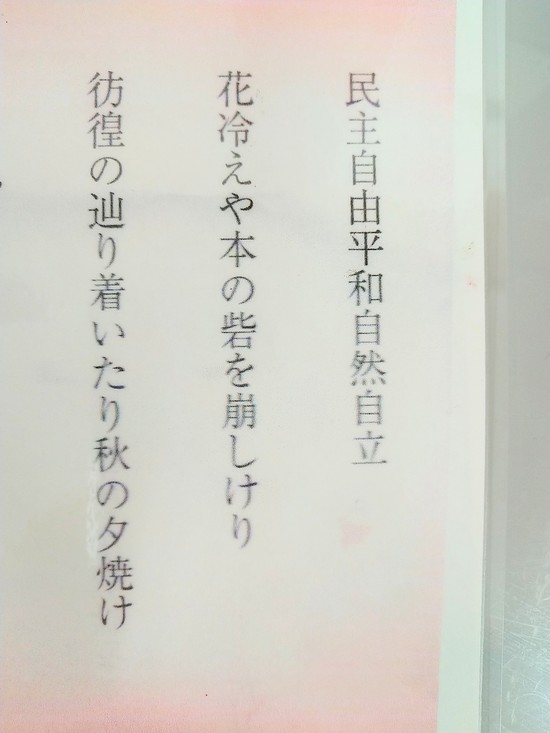 民主自由平和自然自立
花冷えや本の砦を崩しけり
彷徨の辿り着いたり秋の夕焼け